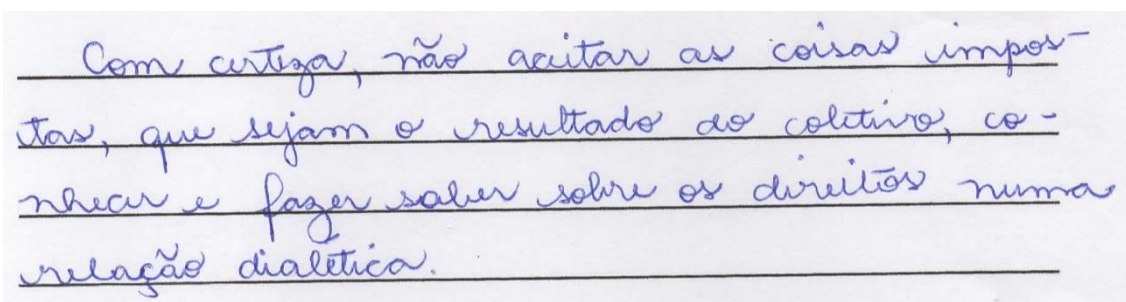 Com certeza, não aceitar as coisas impos-
tas, que sejam o resultado do coletivo, co-
nhecer e fazer saber sobre os direitos numa
relação dialética.